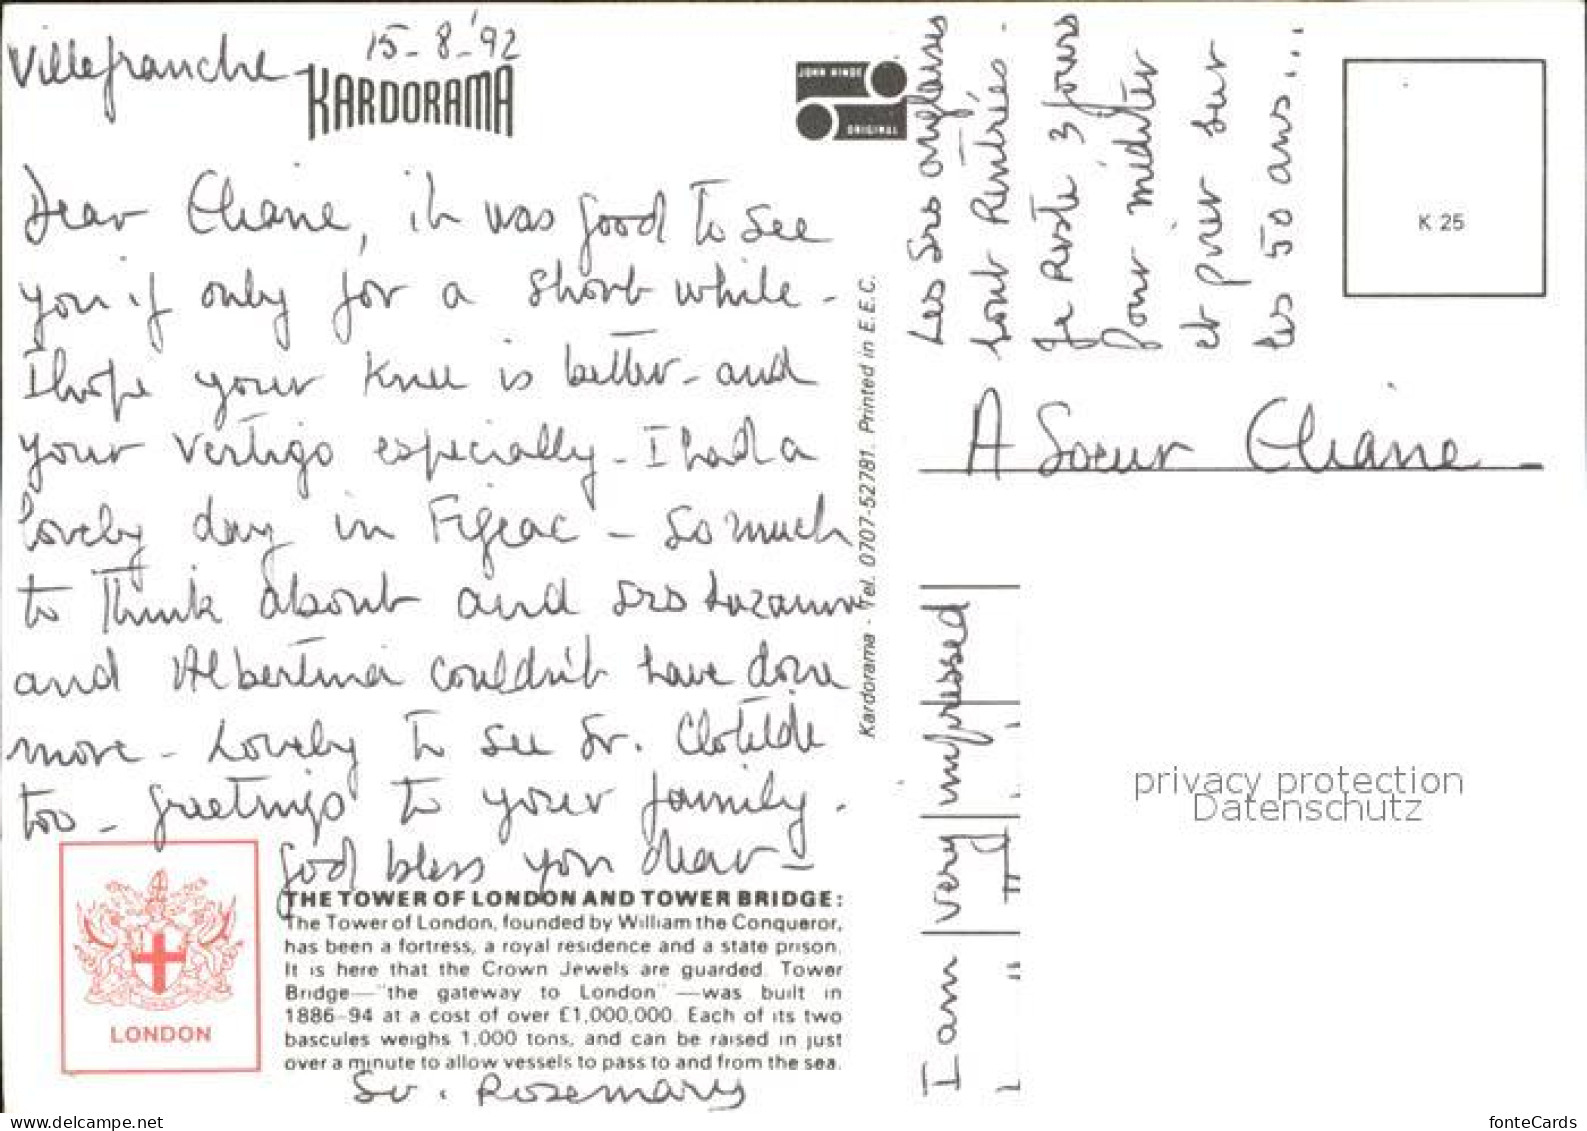 Villefranche 15-8-'92
KARDORAMA
JOHN HINDE
ORIGINAL
Dear Eliane, it was good to see
you if only for a short while -
I hope your knee is better - and
your vertigo especially - I had a
lovely day in Figeac - so much
to think about and Srs Suzanne
and Albertina couldn't have done
more - Lovely to see Sr. Clotilde
too - greetings to your family -
God bless you dear -
THE TOWER OF LONDON AND TOWER BRIDGE:
The Tower of London, founded by William the Conqueror,
has been a fortress, a royal residence and a state prison.
It is here that the Crown Jewels are guarded. Tower
Bridge—"the gateway to London"—was built in
1886-94 at a cost of over £1,000,000. Each of its two
bascules weighs 1,000 tons, and can be raised in just
over a minute to allow vessels to pass to and from the sea.
LONDON
Sr. Rosemary
Kardorama - Tel. 0707-52781. Printed in E.E.C.
Les Srs anglaises
sont rentrées.
Je reste 3 jours
pour méditer
et prier sur
les 50 ans...
K 25
A Soeur Eliane -
I am very impressed
privacy protection
Datenschutz
delcampe.net
fonteCards